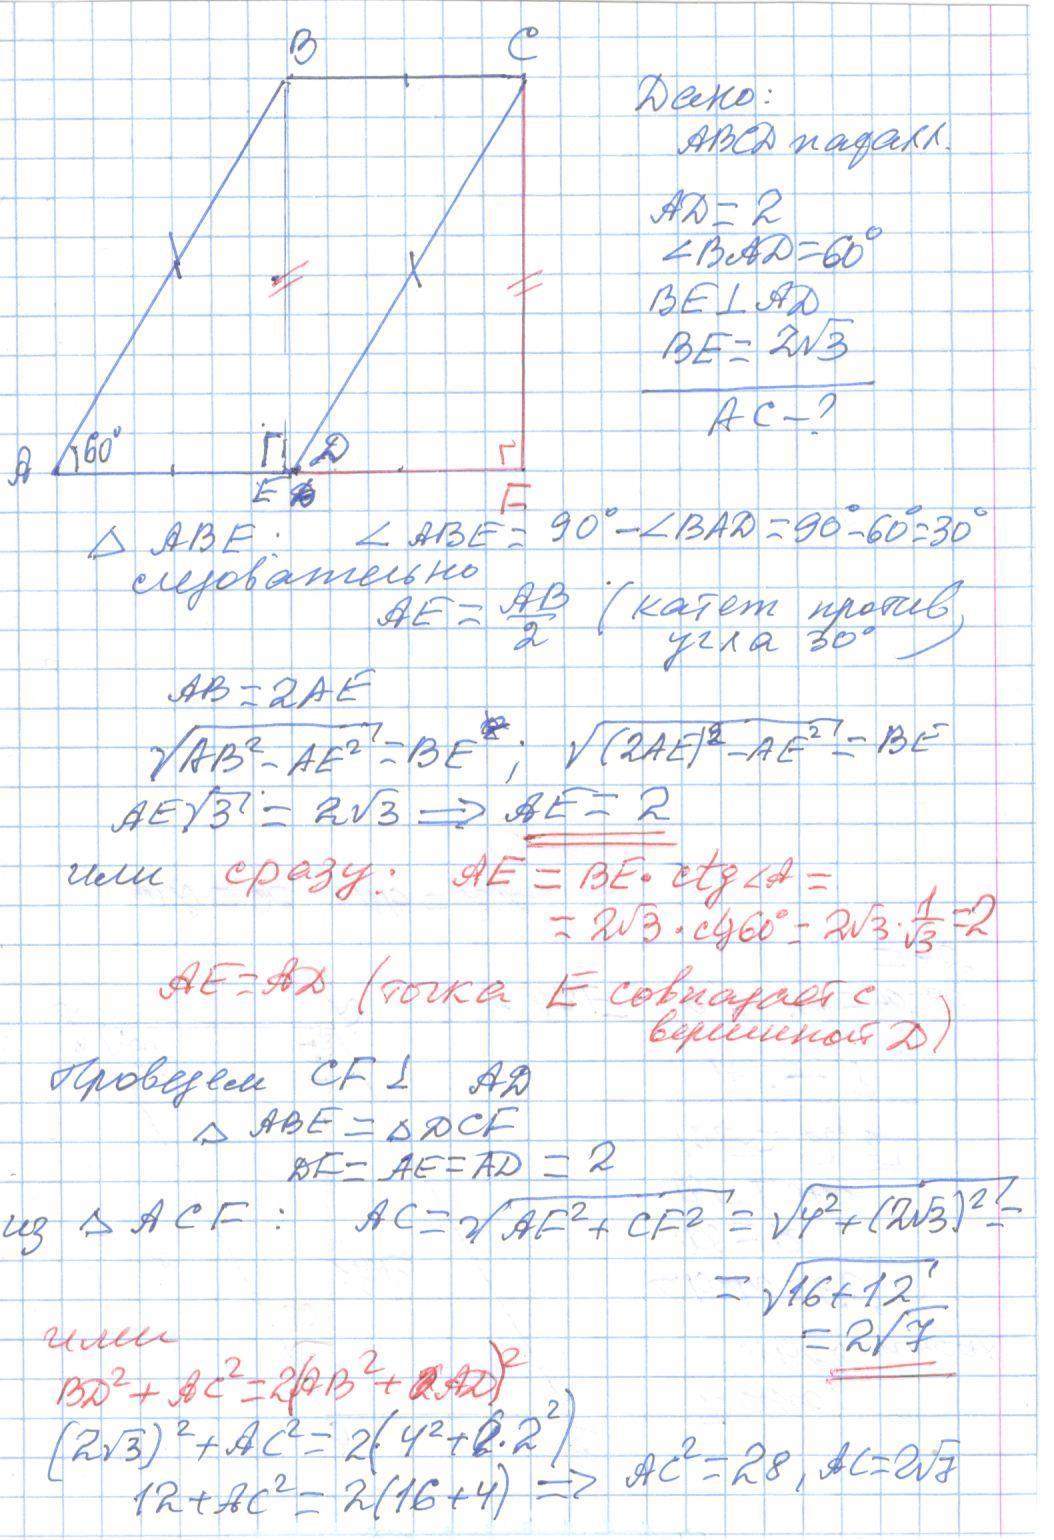 B C
Дано:
ABCD паралл.
AD = 2
∠BAD = 60°
BE ⊥ AD
BE = 2√3
AC - ?
A 60° D
E F
△ ABE : ∠ ABE = 90° - ∠BAD = 90° - 60° = 30°
следовательно
AE = AB/2 (катет против
угла 30°)
AB = 2AE
√(AB² - AE²) = BE ; √((2AE)² - AE²) = BE
AE√3 = 2√3 ⇒ AE = 2
или сразу: AE = BE · ctg∠A =
= 2√3 · ctg60° = 2√3 · 1/√3 = 2
AE = AD (точка E совпадает с
вершиной D)
Проведем CF ⊥ AD
△ ABE = △ DCF
DF = AE = AD = 2
из △ ACF : AC = √(AF² + CF²) = √(4² + (2√3)²) =
= √(16 + 12)
= 2√7
или
BD² + AC² = 2(AB² + AD)²
(2√3)² + AC² = 2(4² + 2²)
12 + AC² = 2(16 + 4) ⇒ AC² = 28, AC = 2√7